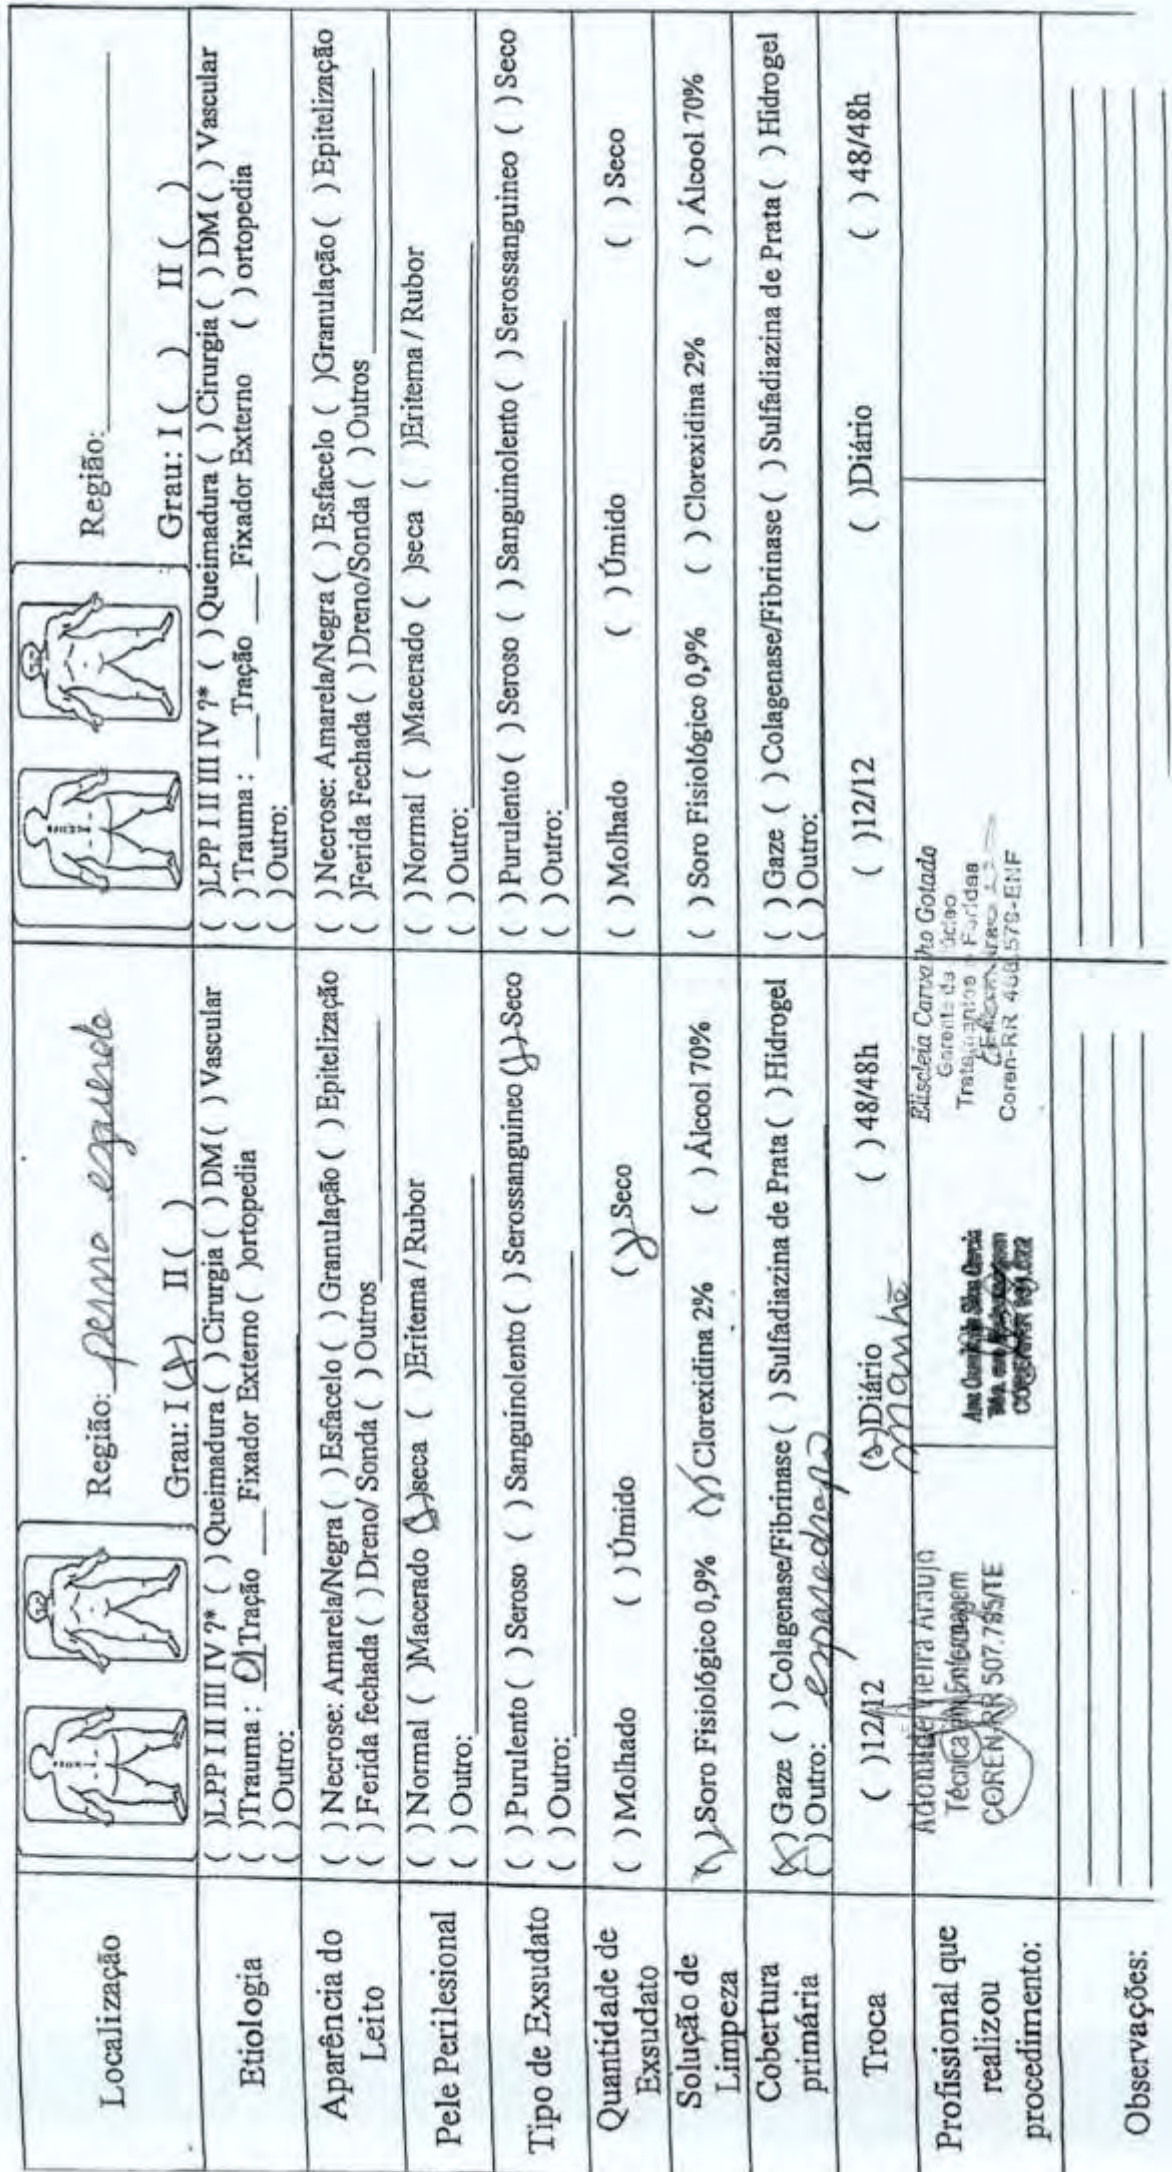 Localização
Região: perna esquerda
Grau: I (X) II ( )
Região:
Grau: I ( ) II ( )
Etiologia
( )LPP I II III IV ?* ( ) Queimadura ( ) Cirurgia ( ) DM ( ) Vascular
( )Trauma : Tração ___Fixador Externo ( )ortopedia
( ) Outro:
( )LPP I II III IV ?* ( ) Queimadura ( ) Cirurgia ( ) DM ( ) Vascular
( )Trauma : ___Tração ___Fixador Externo ( ) ortopedia
( ) Outro:
Aparência do
Leito
( ) Necrose: Amarela/Negra ( ) Esfacelo ( ) Granulação ( ) Epitelização
( ) Ferida fechada ( ) Dreno/ Sonda ( ) Outros
( ) Necrose: Amarela/Negra ( ) Esfacelo ( )Granulação ( ) Epitelização
( )Ferida Fechada ( ) Dreno/Sonda ( ) Outros
Pele Perilesional
( ) Normal ( )Macerado (X)seca ( )Eritema / Rubor
( ) Outro:
( ) Normal ( )Macerado ( )seca ( )Eritema / Rubor
( ) Outro:
Tipo de Exsudato
( ) Purulento ( ) Seroso ( ) Sanguinolento ( ) Serossanguineo (X) Seco
( ) Outro:
( ) Purulento ( ) Seroso ( ) Sanguinolento ( ) Serossanguineo ( ) Seco
( ) Outro:
Quantidade de
Exsudato
( ) Molhado ( ) Úmido (X) Seco
( ) Molhado ( ) Úmido ( ) Seco
Solução de
Limpeza
(X) Soro Fisiológico 0,9% (X) Clorexidina 2% ( ) Álcool 70%
( ) Soro Fisiológico 0,9% ( ) Clorexidina 2% ( ) Álcool 70%
Cobertura
primária
(X) Gaze ( ) Colagenase/Fibrinase ( ) Sulfadiazina de Prata ( ) Hidrogel
( ) Outro: esparadrapo
( ) Gaze ( ) Colagenase/Fibrinase ( ) Sulfadiazina de Prata ( ) Hidrogel
( ) Outro:
Troca
( )12/12 (X)Diário ( ) 48/48h
manhã
( )12/12 ( )Diário ( ) 48/48h
Profissional que
realizou
procedimento:
Vieira Araujo
Técnica em Enfermagem
COREN-RR 507.785/TE
Ana Silva Garcia
Eliscleia Carvalho Gotado
Gerente do Núcleo
Tratamentos Feridas
Coren-RR -ENF
Observações: